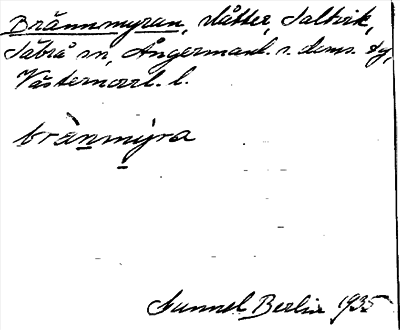 Brännmyran, slåtter, Saltvik,
Säbrå sn, Ångermanl. s. doms. dg,
Västernorrl. l.
brànmýra
Gunnel Berlin 1935